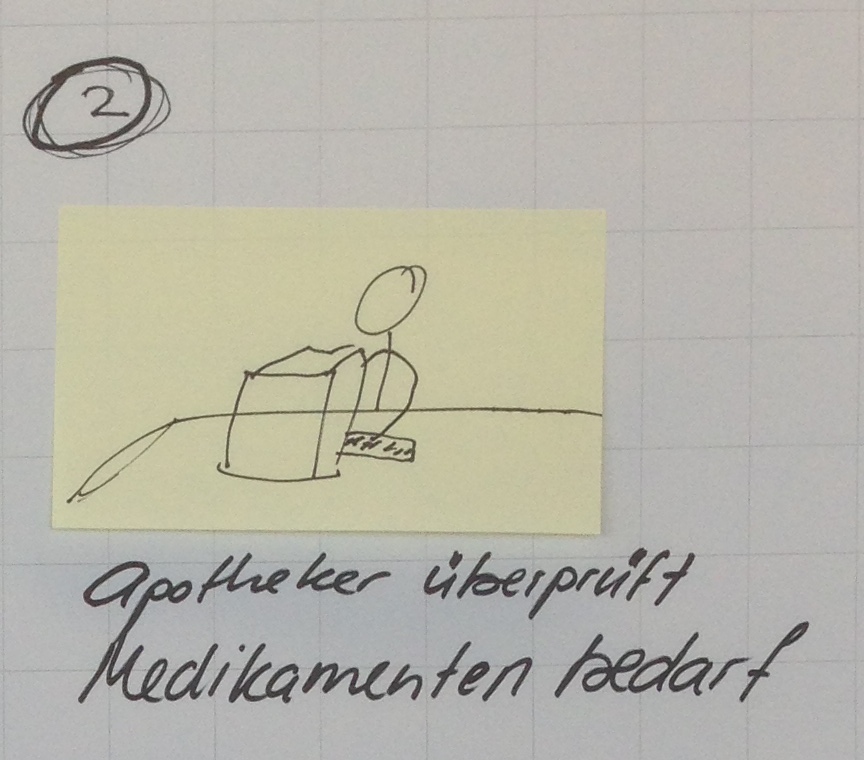 2
Apotheker überprüft
Medikamenten bedarf